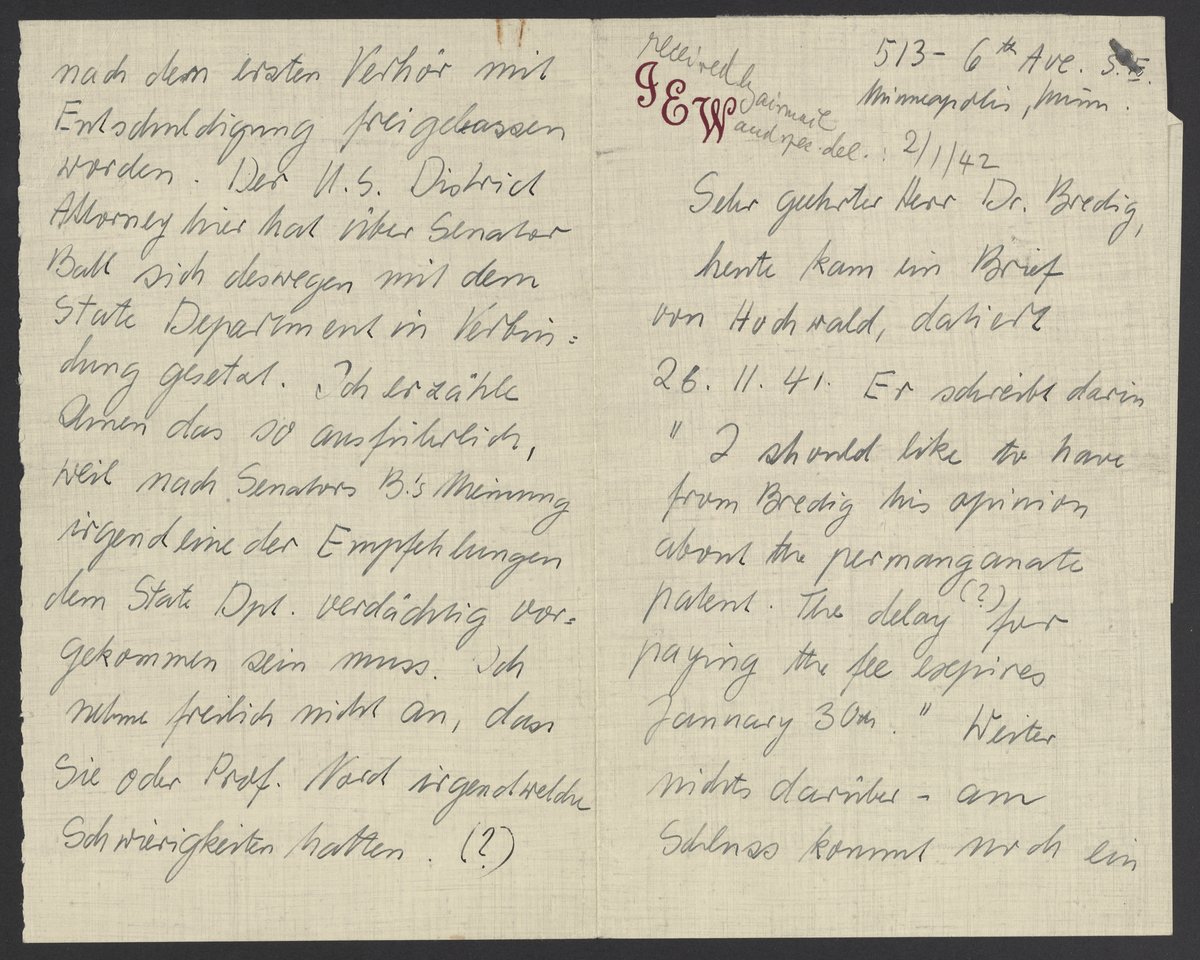 nach dem ersten Verhör mit
Entschuldigung freigelassen
worden. Der U.S. District
Attorney hier hat über Senator
Ball sich deswegen mit dem
State Department in Verbin=
dung gesetzt. Ich erzähle
Ihnen das so ausführlich,
weil nach Senators B.'s Meinung
irgend eine der Empfehlungen
dem State Dpt. verdächtig vor=
gekommen sein muss. Ich
nehme freilich nicht an, dass
Sie oder Prof. Nord irgendwelche
Schwierigkeiten hatten. (?)
received by
airmail
and spec. del. :
IEW
513 - 6th Ave. S.E.
Minneapolis, Minn.
2/1/42
Sehr geehrter Herr Dr. Bredig,
heute kam ein Brief
von Hochwald, datiert
26. 11. 41. Er schreibt darin
" I should like to have
from Bredig his opinion
about the permanganate
patent. The delay (?) for
paying the fee expires
January 30th." Weiter
nichts darüber - am
Schluss kommt noch ein